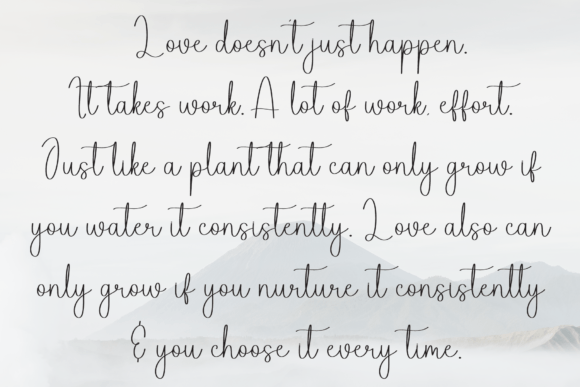 Love doesn't just happen.
It takes work. A lot of work. effort.
Just like a plant that can only grow if
you water it consistently. Love also can
only grow if you nurture it consistently
& you choose it every time.